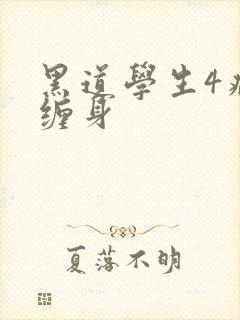 黑道學生4
缠身
夏落不明